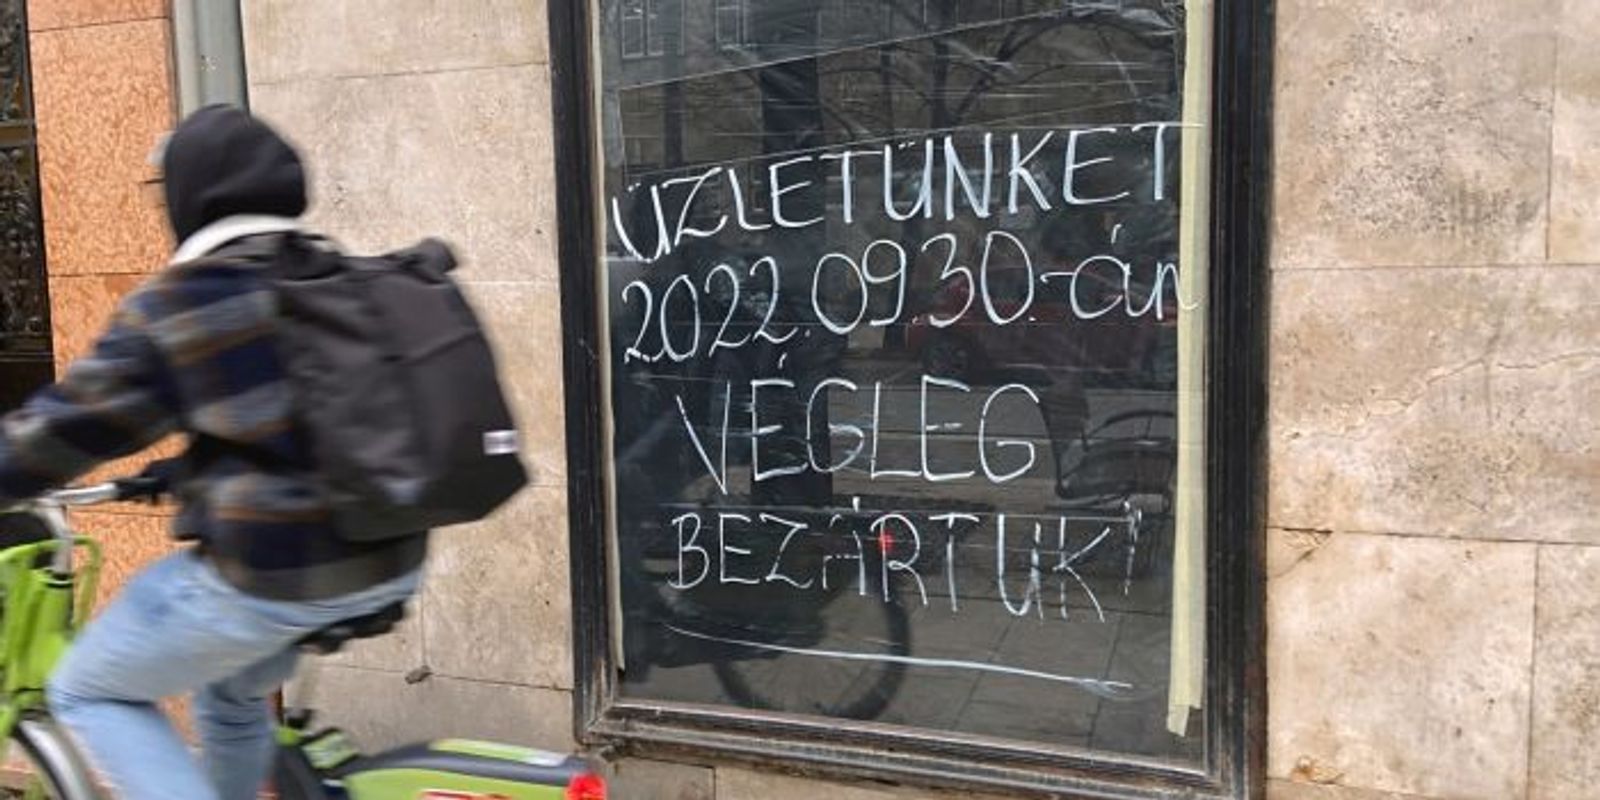 ÜZLETÜNKET
2022.09.30.-án
VÉGLEG
BEZÁRTUK!